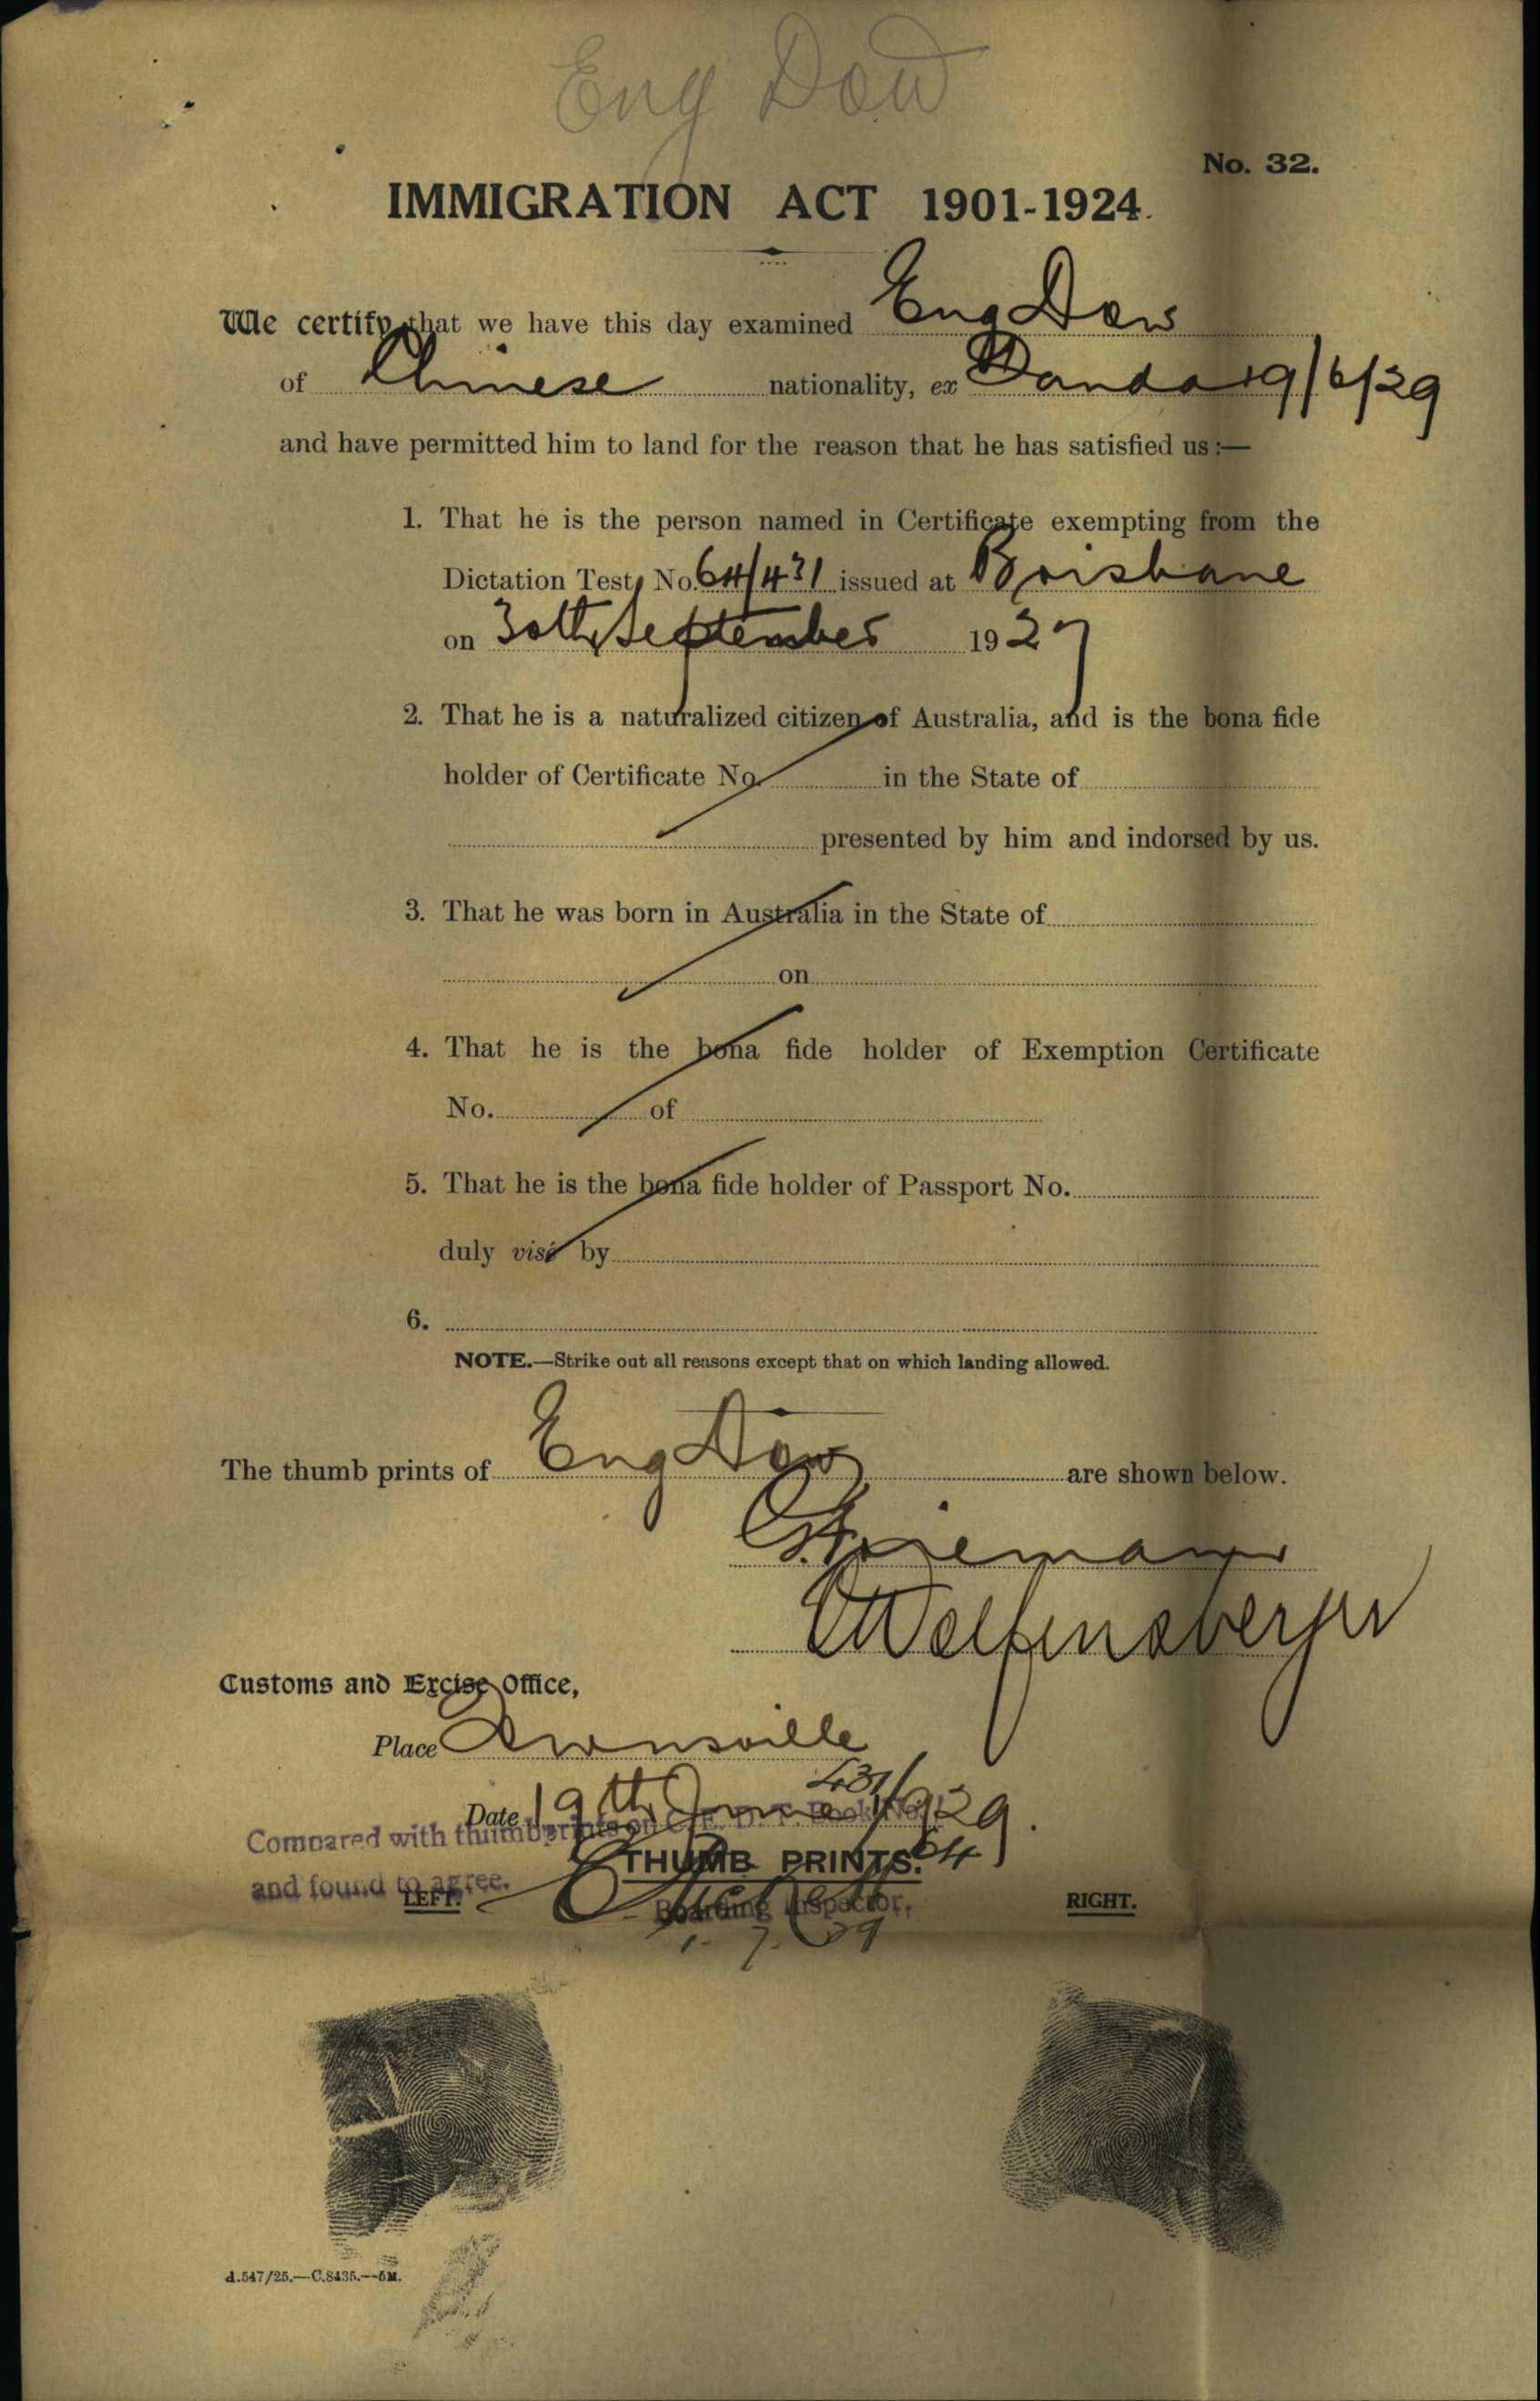 Eng Dow
No. 32.
IMMIGRATION ACT 1901-1924.
We certify that we have this day examined Eng Dow
of Chinese nationality, ex Tanda 19/6/29
and have permitted him to land for the reason that he has satisfied us :—
1. That he is the person named in Certificate exempting from the
Dictation Test, No. 64/431 issued at Brisbane
on 30th September 1927
2. That he is a naturalized citizen of Australia, and is the bona fide
holder of Certificate No. in the State of
presented by him and indorsed by us.
3. That he was born in Australia in the State of
on
4. That he is the bona fide holder of Exemption Certificate
No. of
5. That he is the bona fide holder of Passport No.
duly visé by
6.
NOTE.—Strike out all reasons except that on which landing allowed.
The thumb prints of Eng Dow are shown below.
Wolfensberger
Customs and Excise Office,
Place Townsville
431/
Date 19th June 1929.
Compared with thumbprints on C. E. D. T. Book No.
64
THUMB PRINTS.
and found to agree.
LEFT.
Boarding Inspector,
RIGHT.
1. 7. 29
A.547/25.—C.8435.—5M.